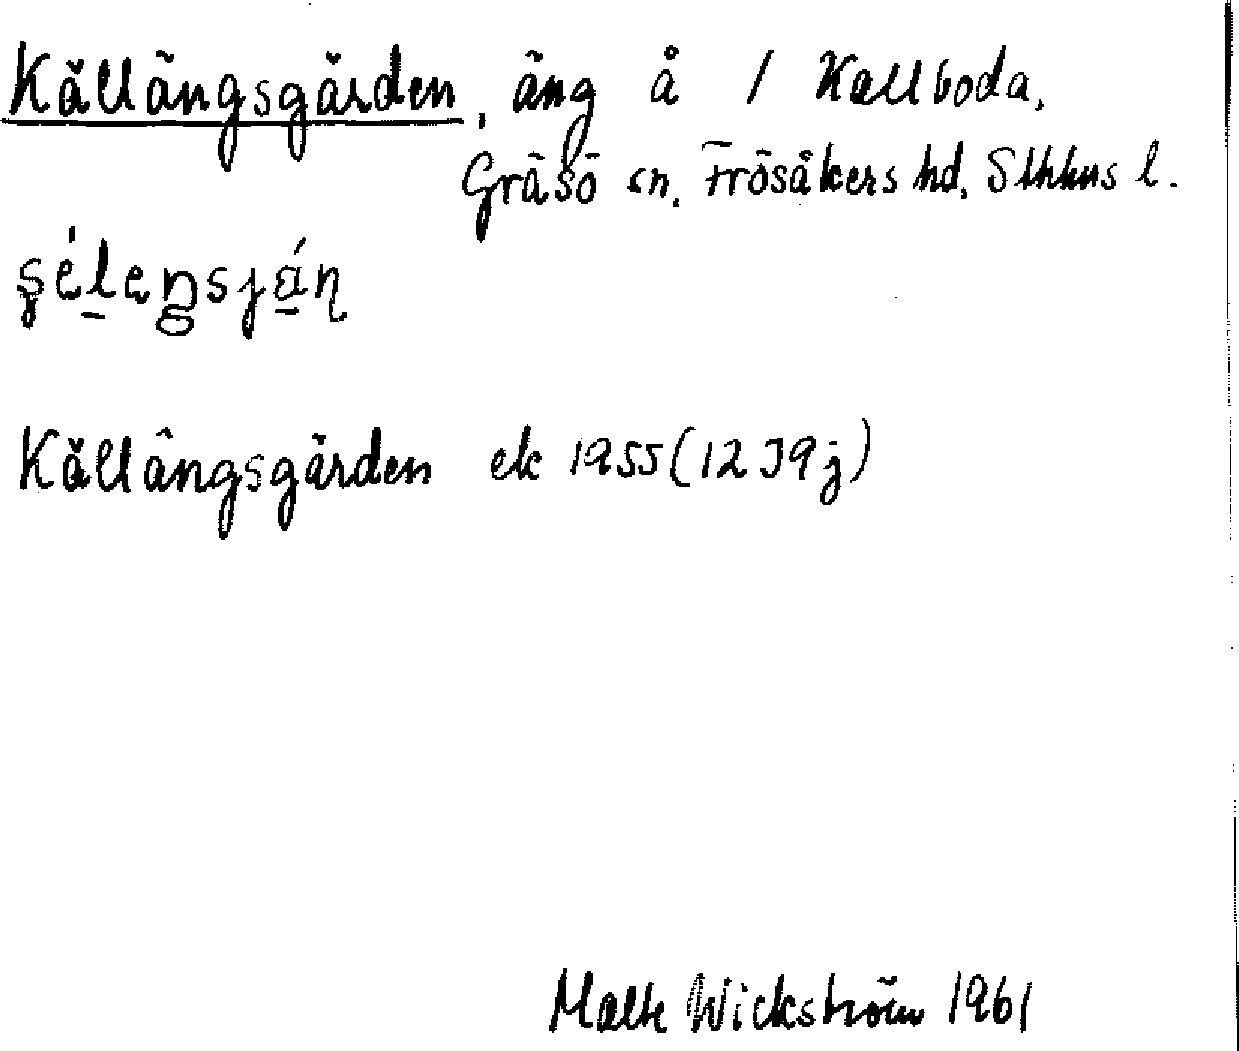 Källängsgärden, äng å 1 Kallboda,
Gräsö sn, Frösåkers hd, Sthlms l.
Källängsgärden ek 1955 (12 I 9 j)
Malte Wickström 1961